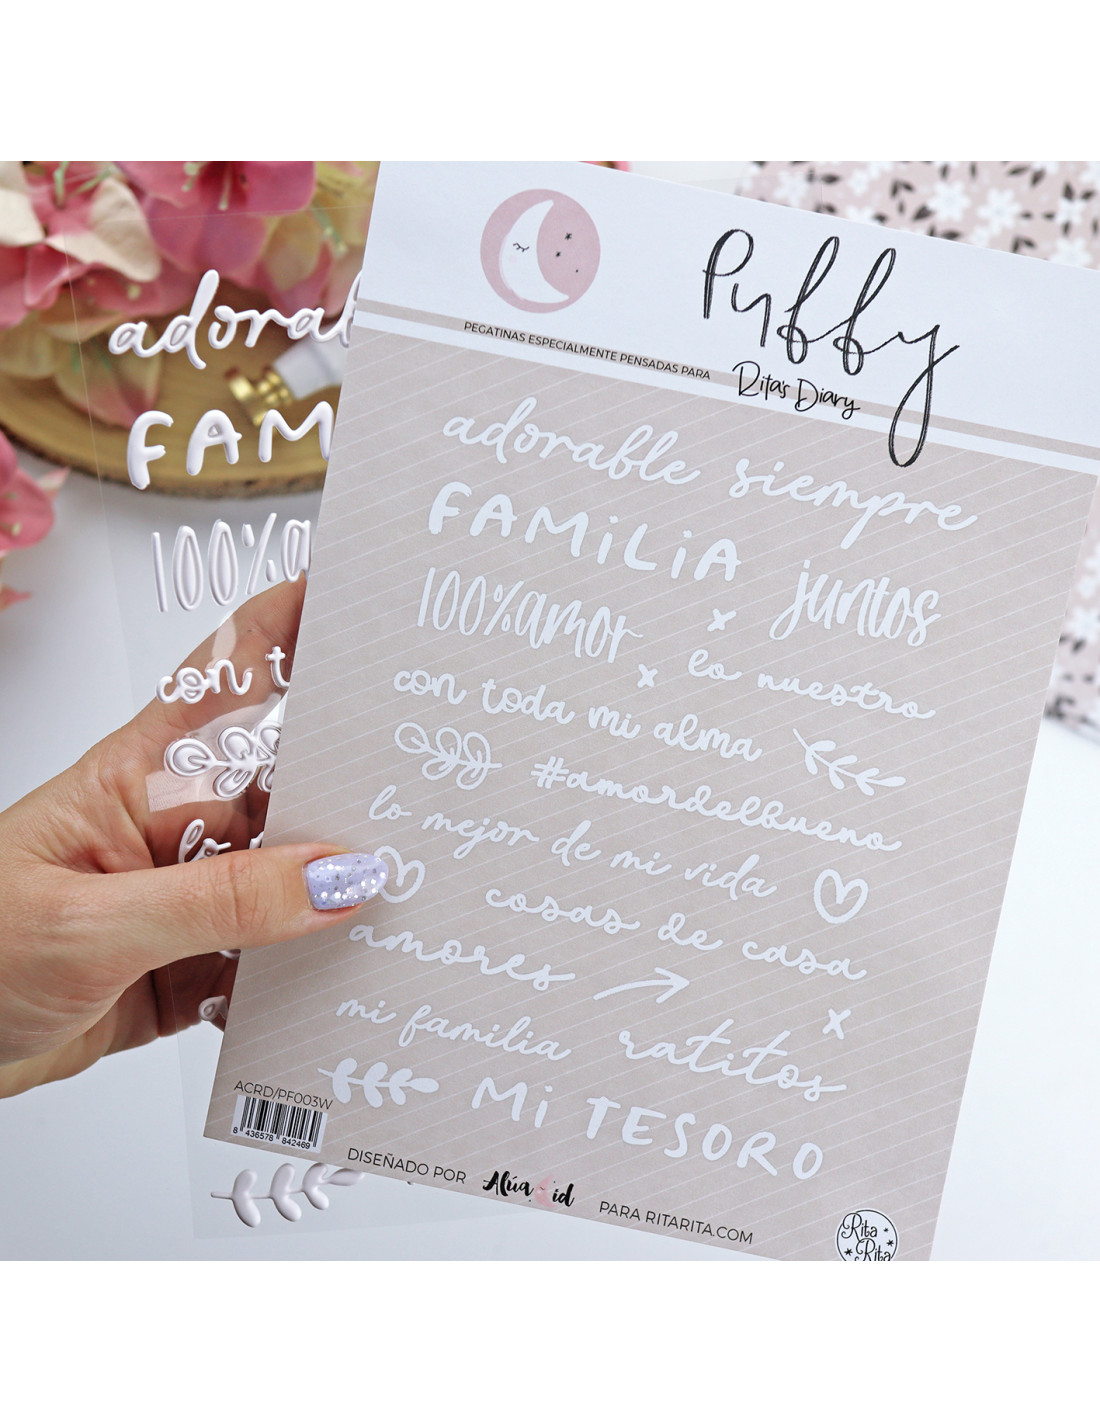 Puffy
PEGATINAS ESPECIALMENTE PENSADAS PARA Rita's Diary
adorable siempre
FAMiLiA
juntos
100%amor
lo nuestro
con toda mi alma
#amordelbueno
lo mejor de mi vida
cosas de casa
amores
mi familia ratitos
Mi TESORO
ACRD/PF003W
8 436578 842469
DISEÑADO POR Alúa Cid PARA RITARITA.COM
Rita
Rita
adorabl
FAM
100%a
con t
lo